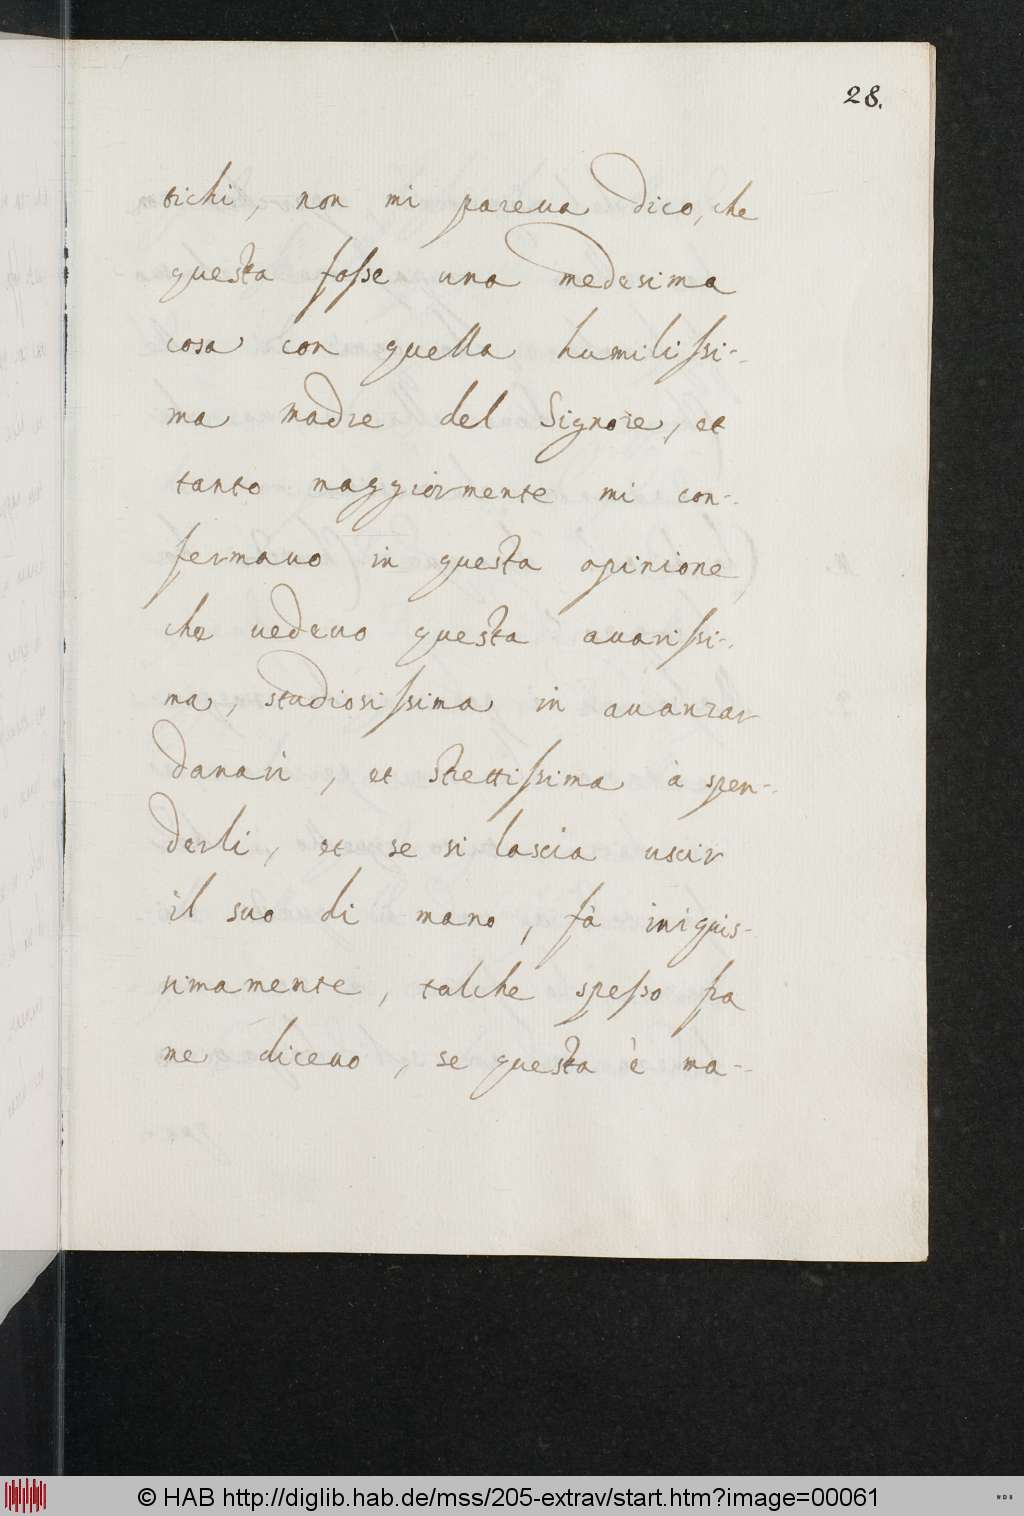 28.
tichi, non mi pareua dico, che
questa fosse una medesima
cosa con quella humilissi-
ma madre del Signore, et
tanto maggiormente mi con-
fermauo in questa opinione,
che uedeuo questa auarissi-
ma, studiosissima in auanzar
danari, et strettissima à spen-
derli, et se si lascia uscir
il suo di mano, fà iniquis-
simamente, talche spesso fra
me diceuo, se questa è ma-
© HAB http://diglib.hab.de/mss/205-extrav/start.htm?image=00061